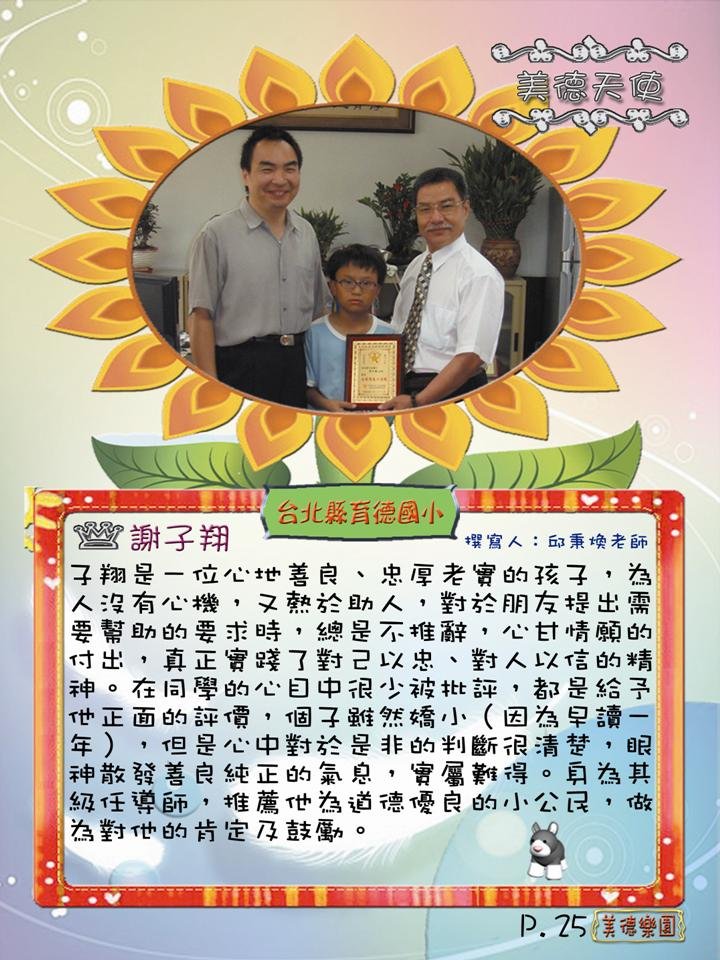 美德天使
台北縣育德國小
謝子翔
撰寫人：邱秉煥老師
子翔是一位心地善良、忠厚老實的孩子，為
人沒有心機，又熱於助人，對於朋友提出需
要幫助的要求時，總是不推辭，心甘情願的
付出，真正實踐了對己以忠、對人以信的精
神。在同學的心目中很少被批評，都是給予
他正面的評價，個子雖然嬌小（因為早讀一
年），但是心中對於是非的判斷很清楚，眼
神散發善良純正的氣息，實屬難得。身為其
級任導師，推薦他為道德優良的小公民，做
為對他的肯定及鼓勵。
P. 25 美德樂園